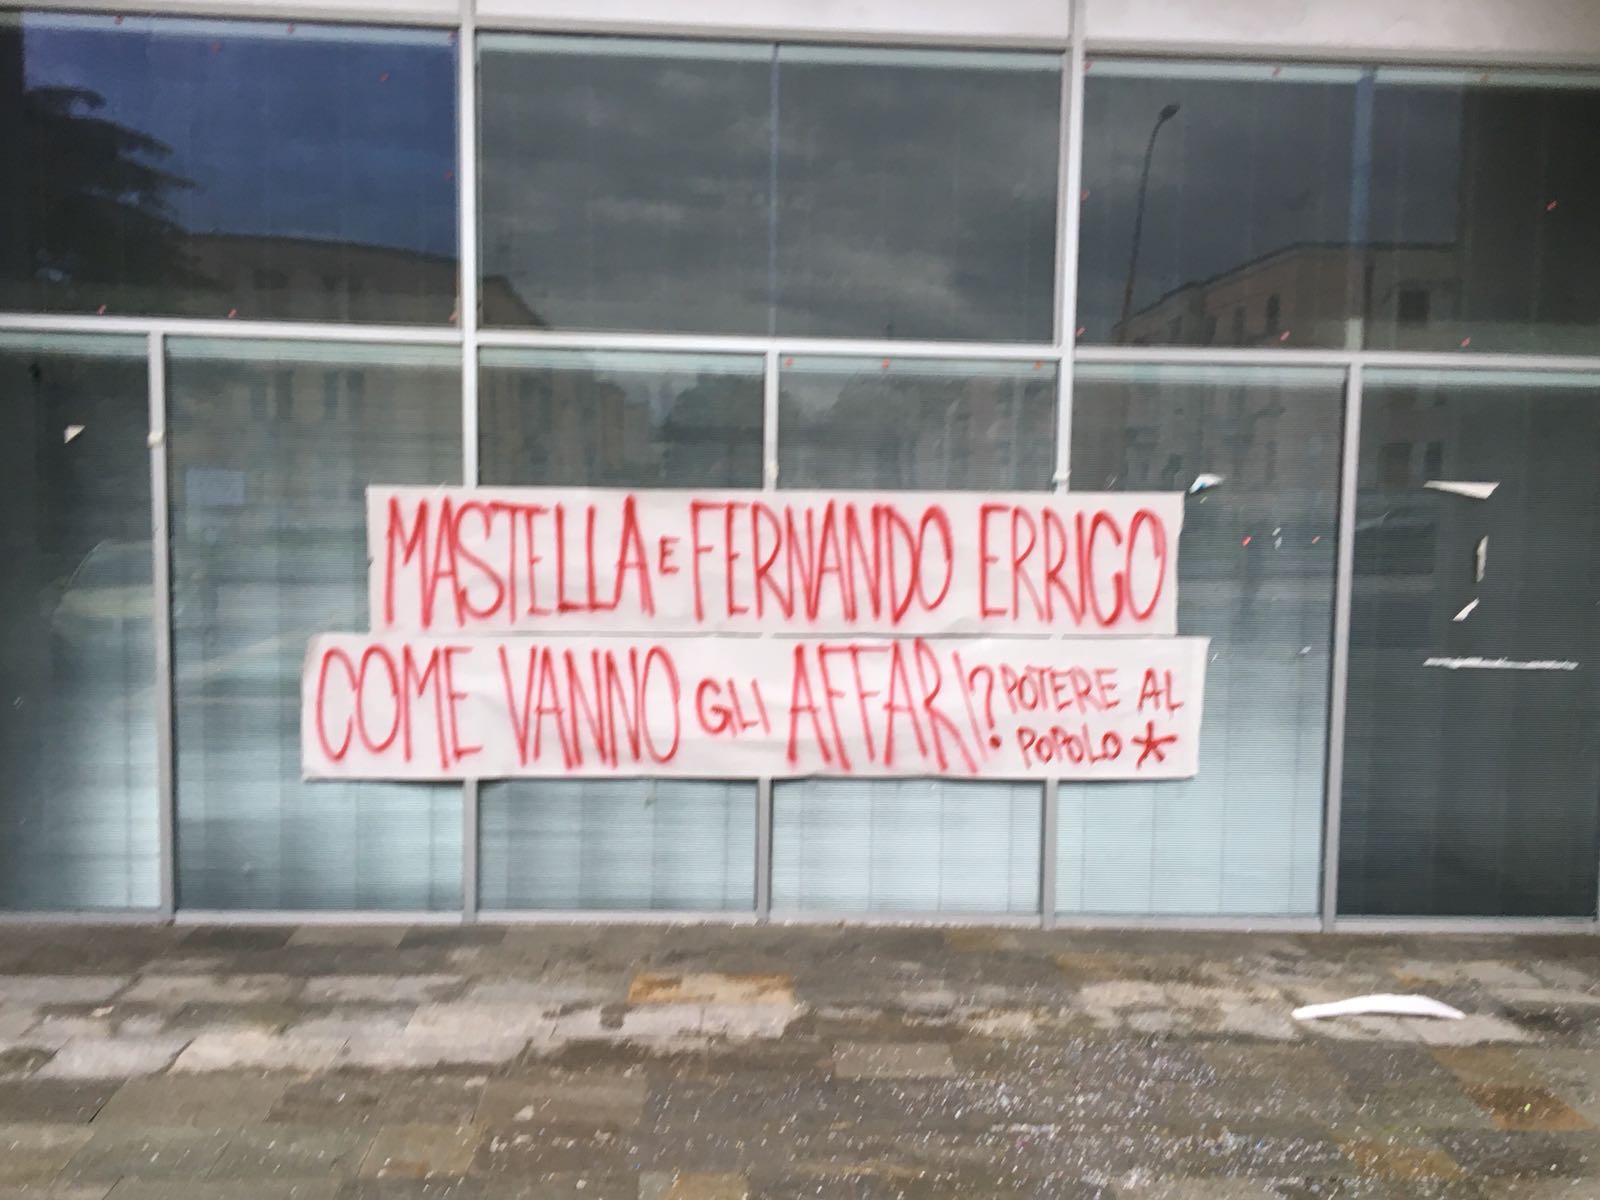 MASTELLA E FERNANDO ERRICO
COME VANNO GLI AFFARI?
POTERE AL
POPOLO *